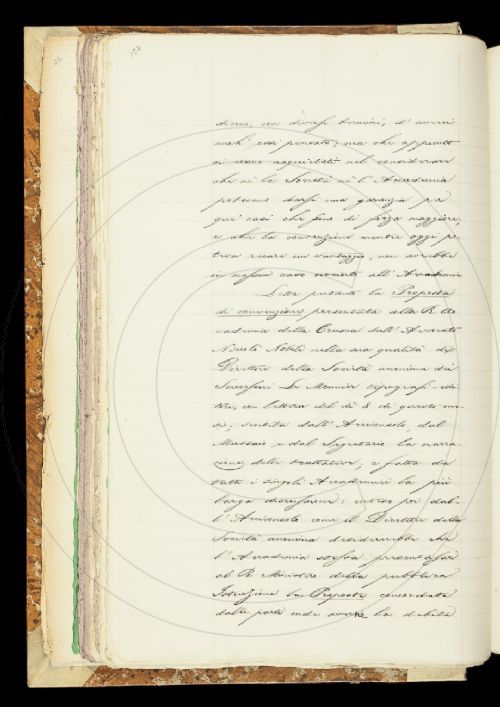 diceva, con diversi termini, d'averci
anch' essi pensato; ma che appunto
si erano acquietati nel considerare
che nè la Società nè l'Accademia
potevano darsi una garanzia per
que' casi che sono di forza maggiore;
e che la convenzione mentre oggi po-
teva recare un vantaggio, non avrebbe
in nessun caso nociuto all'Accademia
Letta pertanto la Proposta
di convenzione presentata alla R. Ac-
cademia della Crusca dall'Avvocato
Niccolò Nobili nella sua qualità di
Direttore della Società anonima dei
Successori Le Monnier tipografi-edi-
tori, con lettera del dì 8 di questo me-
se; sentita dall'Arciconsolo, dal
Massaio e dal Segretario la narra-
zione delle trattative, e fatta da
tutti i singoli Accademici la più
larga discussione: inteso poi dal-
l'Arciconsolo come il Direttore della
Società anonima desiderasse che
l'Accademia stessa presentasse
al R. Ministro della pubblica
Istruzione la Proposta concordata
dalle parti onde avere la debita